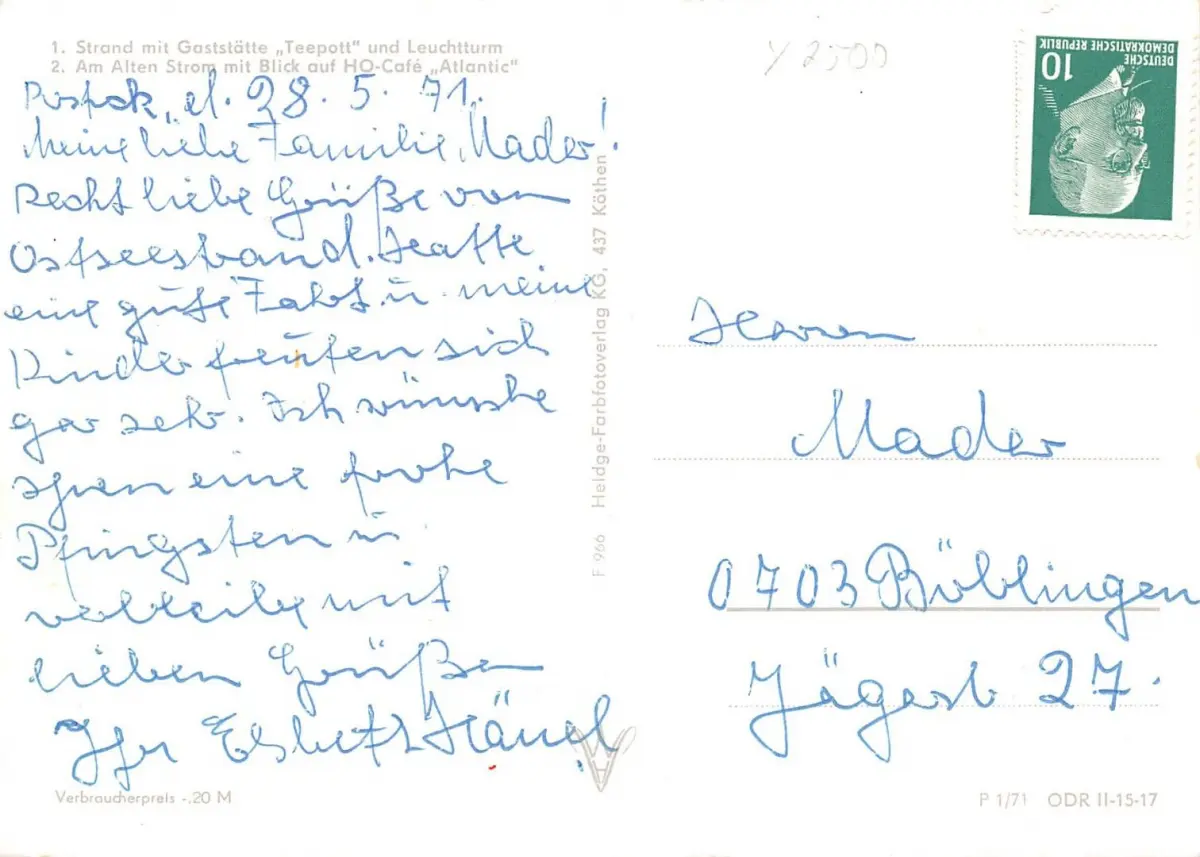 1. Strand mit Gaststätte „Teepott" und Leuchtturm
2. Am Alten Strom mit Blick auf HO-Café „Atlantic"
Rostok, d. 28. 5. 71.
Meine liebe Familie Mader!
Recht liebe Grüße vom
Ostseestrand. Hatte
eine gute Fahrt u. meine
Kinder freuten sich
gar sehr. Ich wünsche
Ihnen eine frohe
Pfingsten u.
verbleibe mit
lieben Grüßen
Ihr Hänel
Verbraucherpreis -,20 M
F 966 Heldge-Farbfotoverlag KG, 437 Köthen
y 2500
DEUTSCHE
DEMOKRATISCHE REPUBLIK
10
Herrn
Mader
0703 Böblingen
Jägerst 27.
P 1/71 ODR II-15-17